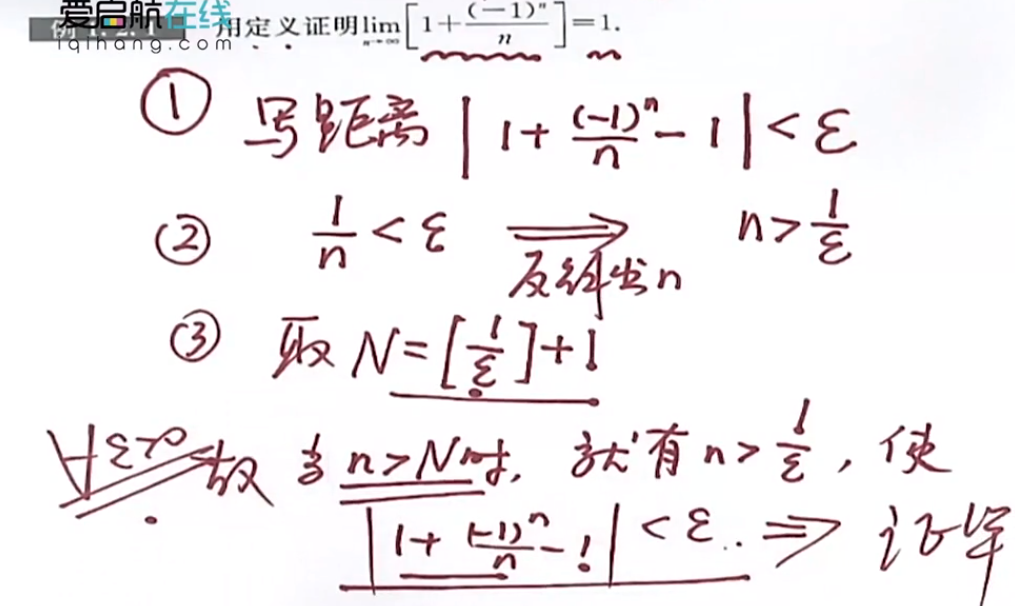 爱启航在线
iqihang.com
例1.2.1 用定义证明lim_{n→∞}[1+(-1)ⁿ/n]=1.
① 写距离 |1+(-1)ⁿ/n-1|<ε
② 1/n<ε ⟹ n>1/ε
反解出n
③ 取 N=[1/ε]+1
∀ε>0 故 当 n>N时, 就有 n>1/ε, 使
|1+(-1)ⁿ/n-1|<ε.. ⟹ 证毕